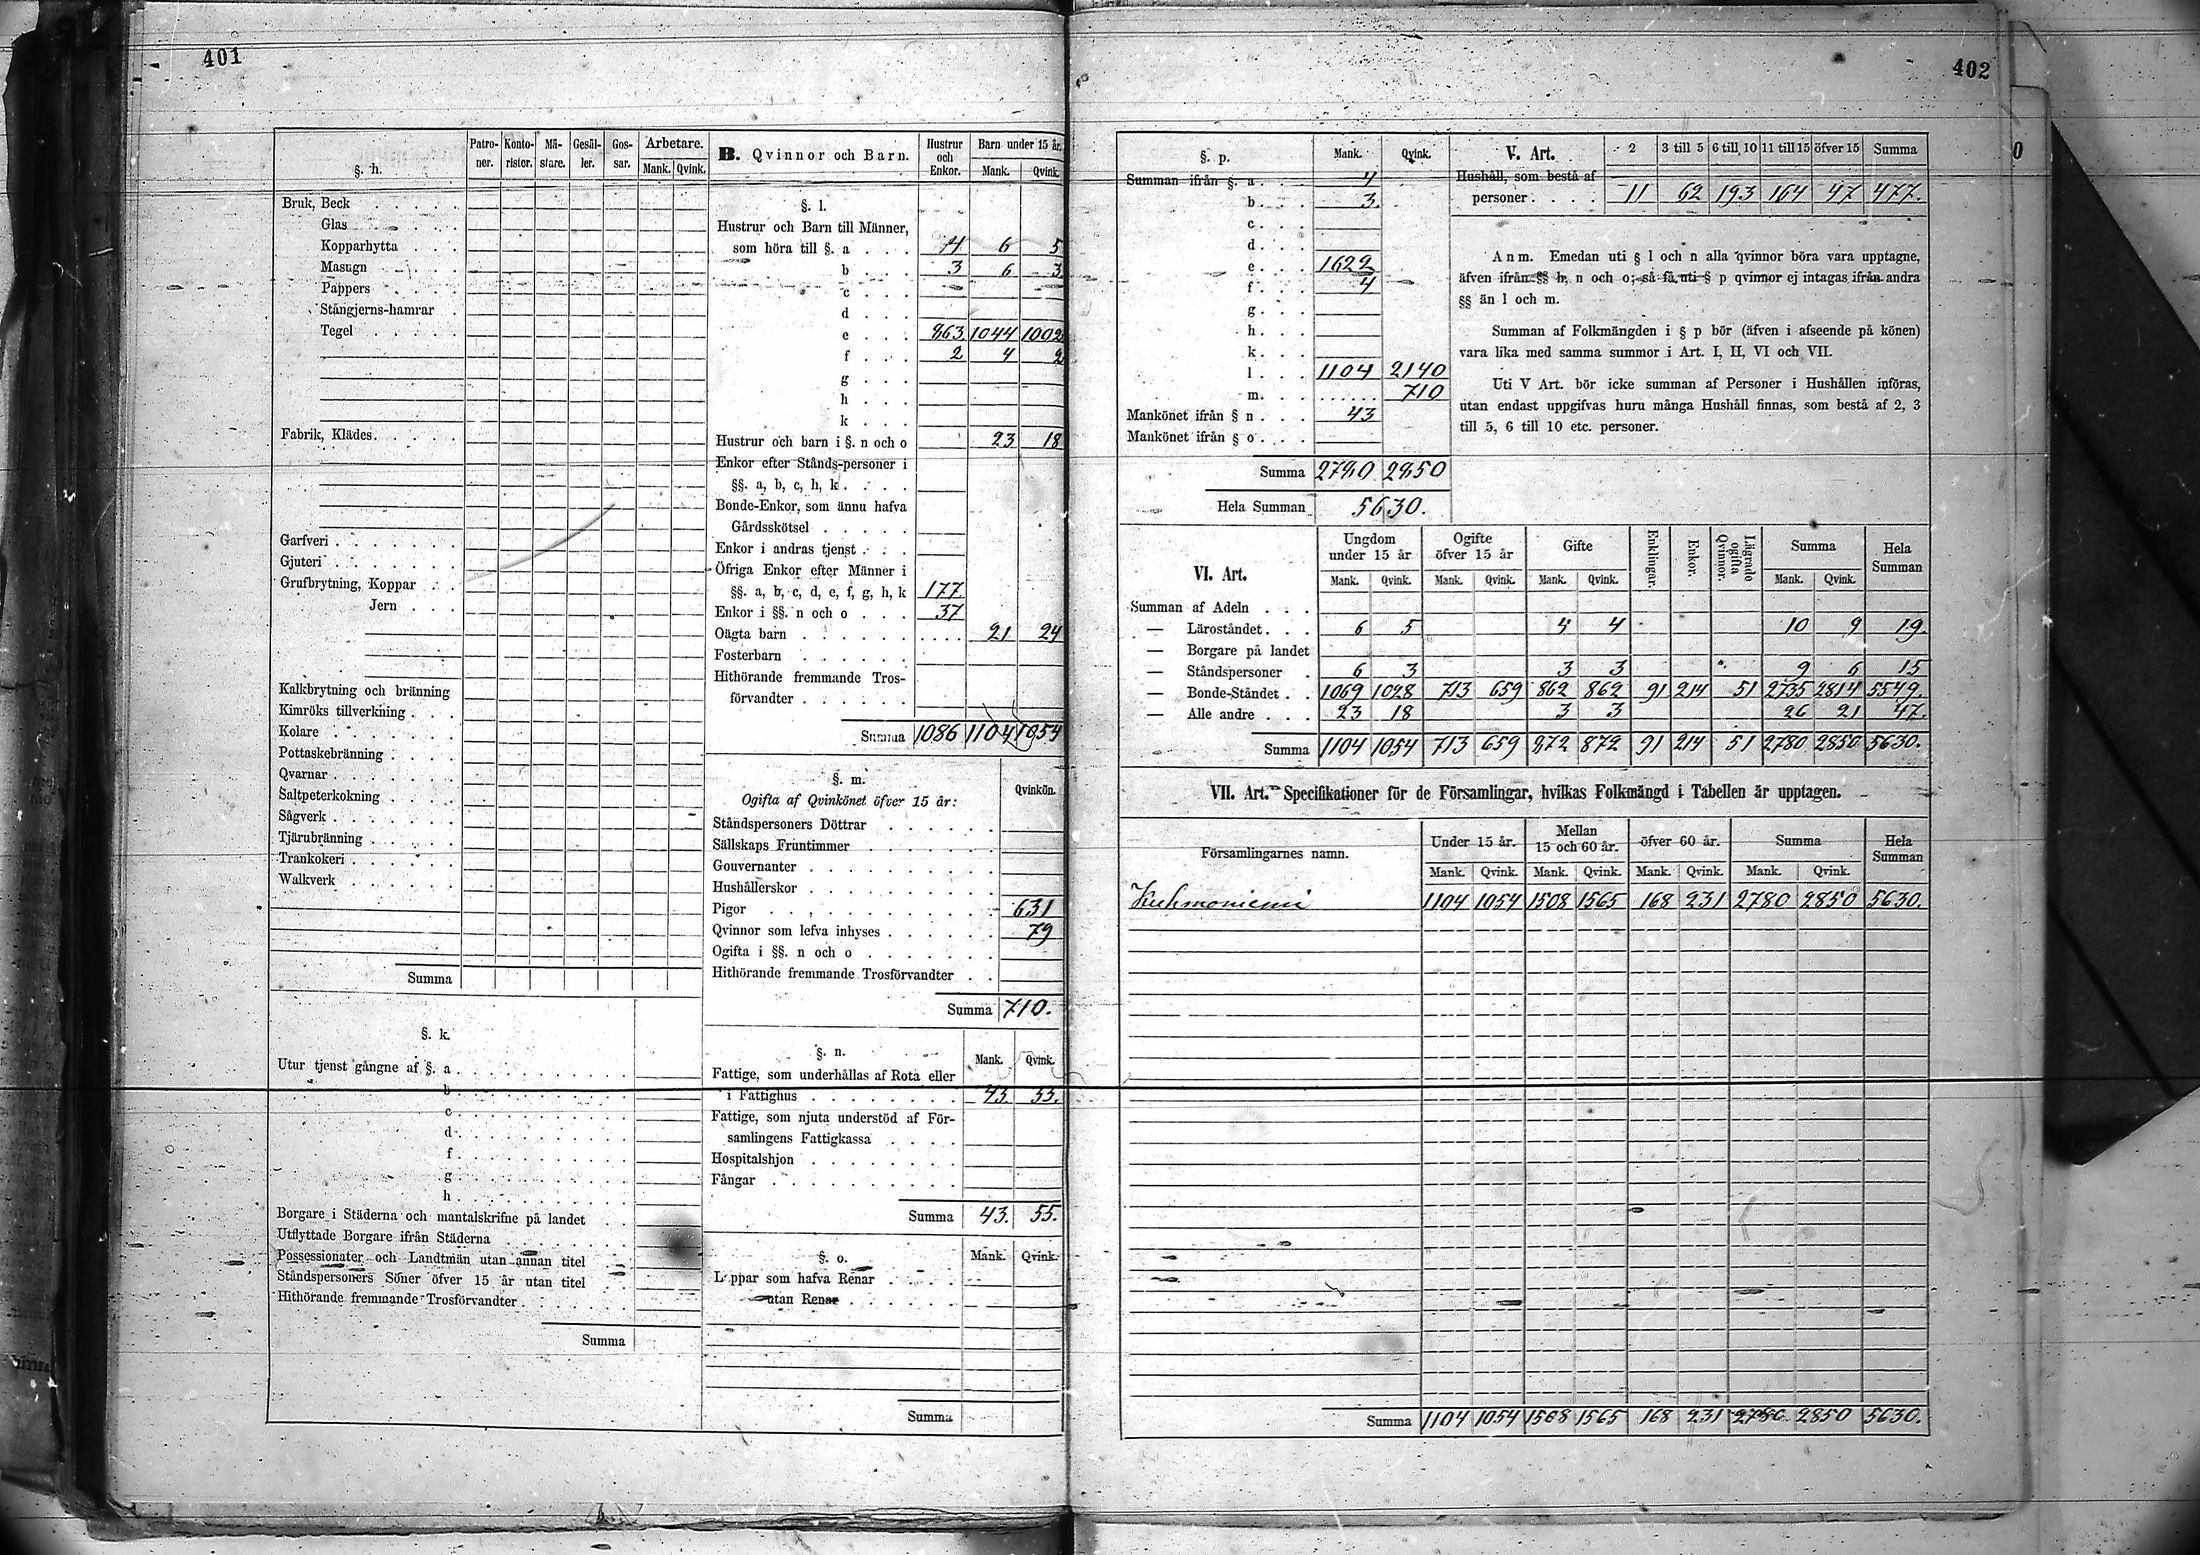 401
§. h.
Patro-ner. Konto-rister. Mä-stare. Gesäl-ler. Gos-sar. Arbetare. Mank. Qvink.
Bruk, Beck
Glas
Kopparhytta
Masugn
Pappers
Stångjerns-hamrar
Tegel
Fabrik, Klädes
Garfveri
Gjuteri
Grufbrytning, Koppar
Jern
Kalkbrytning och bränning
Kimröks tillverkning
Kolare
Pottaskebränning
Qvarnar
Saltpeterkokning
Sågverk
Tjärubränning
Trankokeri
Walkverk
Summa
§. k.
Utur tjenst gångne af §. a
b
c
d
f
g
h
Borgare i Städerna och mantalskrifne på landet
Utflyttade Borgare ifrån Städerna
Possessionater och Landtmän utan annan titel
Ståndspersoners Söner öfver 15 år utan titel
Hithörande fremmande Trosförvandter
Summa
B. Qvinnor och Barn.
Hustrur och Enkor. Barn under 15 år. Mank. Qvink.
§. l.
Hustrur och Barn till Männer,
som höra till §. a 4 6 5
b 3 6 3
c
d
e 863 1044 1002
f 2 4 2
g
h
k
Hustrur och barn i §. n och o 23 18
Enkor efter Stånds-personer i
§§. a, b, c, h, k
Bonde-Enkor, som ännu hafva
Gårdsskötsel
Enkor i andras tjenst
Öfriga Enkor efter Männer i
§§. a, b, c, d, e, f, g, h, k 177
Enkor i §§. n och o 37
Oägta barn 21 24
Fosterbarn
Hithörande fremmande Tros-
förvandter
Summa 1086 1104 1054
§. m.
Ogifta af Qvinkönet öfver 15 år: Qvinkön.
Ståndspersoners Döttrar
Sällskaps Fruntimmer
Gouvernanter
Hushållerskor
Pigor 631
Qvinnor som lefva inhyses 79
Ogifta i §§. n och o
Hithörande fremmande Trosförvandter
Summa 710.
§. n. Mank. Qvink.
Fattige, som underhållas af Rota eller
i Fattighus 43. 55.
Fattige, som njuta understöd af För-
samlingens Fattigkassa
Hospitalshjon
Fångar
Summa 43. 55.
§. o. Mank. Qvink.
Lappar som hafva Renar
utan Renar
Summa
402
§. p. Mank. Qvink.
Summan ifrån §. a 4
b 3.
c
d
e 1622
f 4
g
h
k
l 1104 2140
m. 710
Mankönet ifrån § n 43
Mankönet ifrån § o
Summa 2780 2850
Hela Summan 5630.
V. Art. 2 3 till 5 6 till 10 11 till 15 öfver 15 Summa
Hushåll, som bestå af
personer 11 62 193 164 47 477.
Anm. Emedan uti § l och n alla qvinnor böra vara upptagne,
äfven ifrån §§ h, n och o; så få uti § p qvinnor ej intagas ifrån andra
§§ än l och m.
Summan af Folkmängden i § p bör (äfven i afseende på könen)
vara lika med samma summor i Art. I, II, VI och VII.
Uti V Art. bör icke summan af Personer i Hushållen införas,
utan endast uppgifvas huru många Hushåll finnas, som bestå af 2, 3
till 5, 6 till 10 etc. personer.
VI. Art.
Ungdom under 15 år Ogifte öfver 15 år Gifte Enklingar. Enkor. Lägrade ogifta Qvinnor. Summa Hela Summan
Mank. Qvink. Mank. Qvink. Mank. Qvink. Mank. Qvink.
Summan af Adeln
— Läroståndet 6 5 4 4 10 9 19.
— Borgare på landet
— Ståndspersoner 6 3 3 3 9 6 15
— Bonde-Ståndet 1069 1028 713 659 862 862 91 214 51 2735 2814 5549.
— Alle andre 23 18 3 3 26 21 47.
Summa 1104 1054 713 659 872 872 91 214 51 2780 2850 5630.
VII. Art. Specifikationer för de Församlingar, hvilkas Folkmängd i Tabellen är upptagen.
Församlingarnes namn. Under 15 år. Mellan 15 och 60 år. öfver 60 år. Summa Hela Summan
Mank. Qvink. Mank. Qvink. Mank. Qvink. Mank. Qvink.
Kuhmoniemi 1104 1054 1508 1565 168 231 2780 2850 5630.
Summa 1104 1054 1508 1565 168 231 2780 2850 5630.